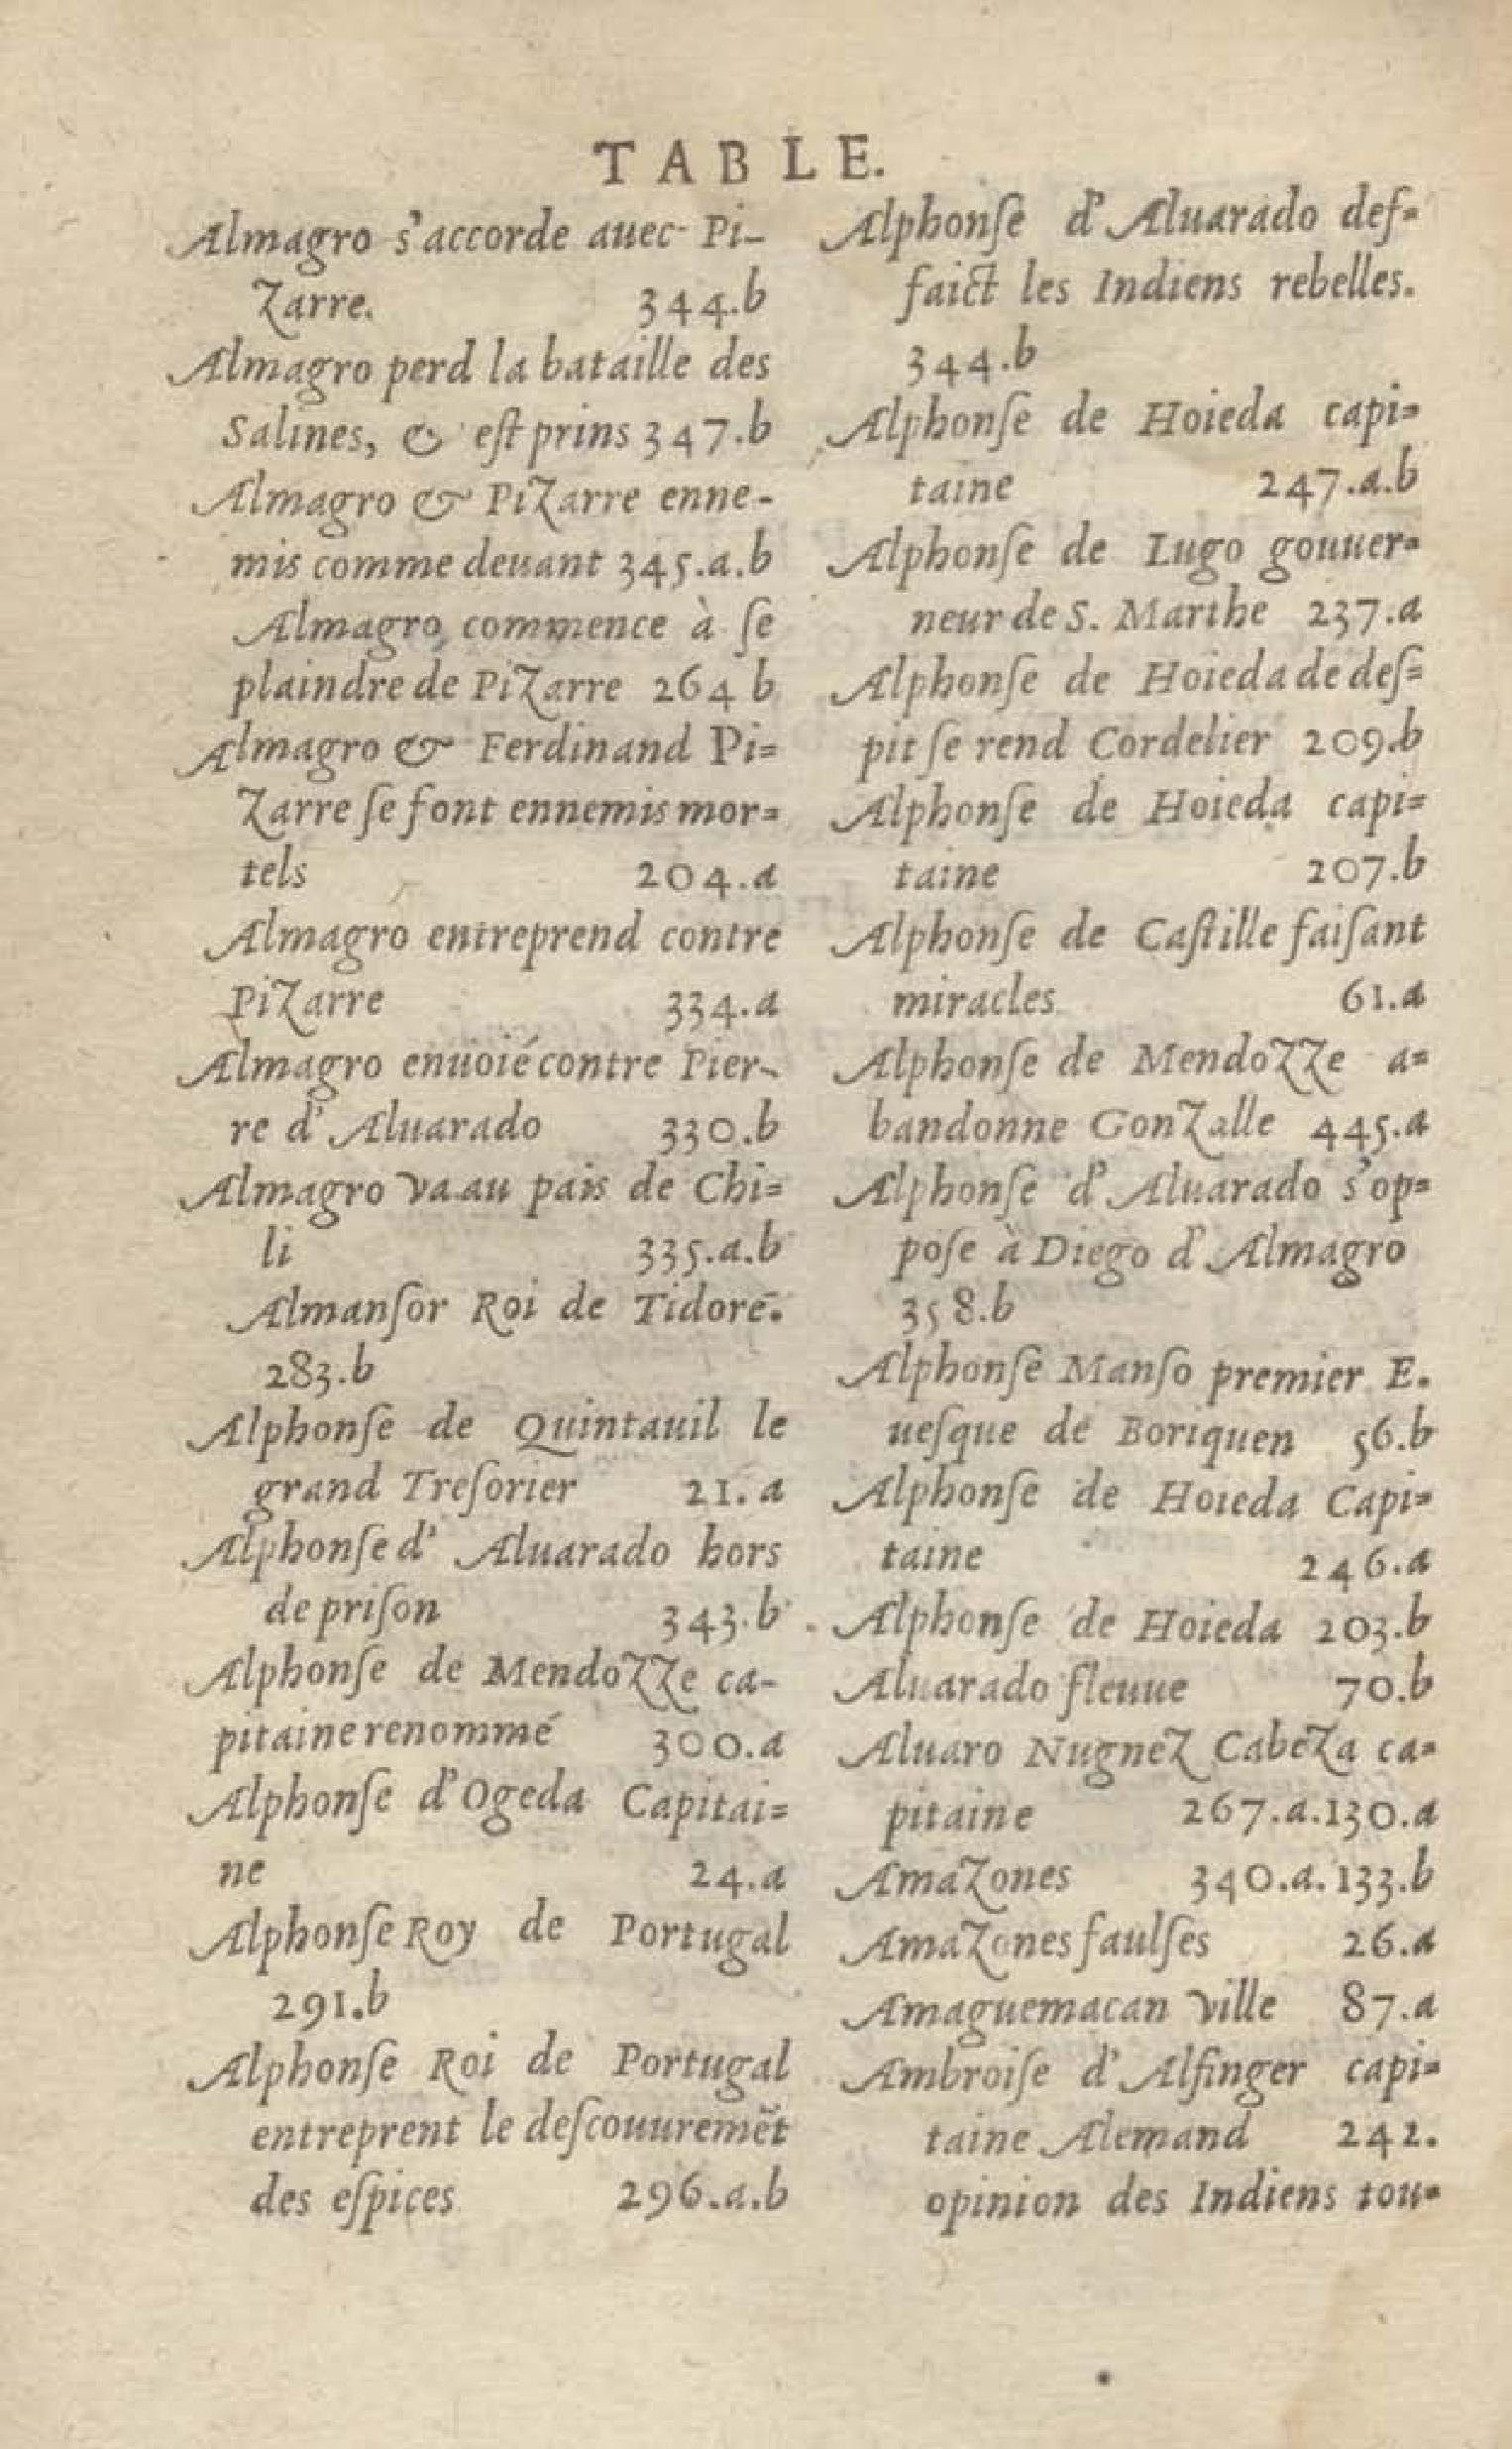 TABLE.
Almagro s'accorde auec Pi-
zarre. 344.b
Almagro perd la bataille des
Salines, & eſt prins 347.b
Almagro & Pizarre enne-
mis comme deuant 345.a.b
Almagro commence à ſe
plaindre de Pizarre 264 b
Almagro & Ferdinand Pi=
zarre ſe font ennemis mor=
tels 204.a
Almagro entreprend contre
Pizarre 334.a
Almagro enuoié contre Pier-
re d'Aluarado 330.b
Almagro va au païs de Chi=
li 335.a.b
Almanſor Roi de Tidore.
283.b
Alphonſe de Quintauil le
grand Treſorier 21.a
Alphonſe d'Aluarado hors
de priſon 343.b
Alphonſe de Mendozze ca-
pitaine renommé 300.a
Alphonſe d'Ogeda Capitai=
ne 24.a
Alphonſe Roy de Portugal
291.b
Alphonſe Roi de Portugal
entreprent le deſcouuremēt
des eſpices 296.a.b
Alphonſe d'Aluarado deſ=
faict les Indiens rebelles.
344.b
Alphonſe de Hoieda capi=
taine 247.a.b
Alphonſe de Lugo gouuer=
neur de S. Marthe 237.a
Alphonſe de Hoieda de deſ=
pit ſe rend Cordelier 209.b
Alphonſe de Hoieda capi=
taine 207.b
Alphonſe de Caſtille faiſant
miracles 61.a
Alphonſe de Mendozze a=
bandonne Gonzalle 445.a
Alphonſe d'Aluarado s'op=
poſe à Diego d'Almagro
358.b
Alphonſe Manſo premier E.
ueſque de Boriquen 56.b
Alphonſe de Hoieda Capi=
taine 246.a
Alphonſe de Hoieda 203.b
Aluarado fleuue 70.b
Aluaro Nugnez Cabeza ca=
pitaine 267.a.130.a
Amazones 340.a.133.b
Amazones faulſes 26.a
Amaguemacan ville 87.a
Ambroiſe d'Alfinger capi=
taine Alemand 242.
opinion des Indiens tou=